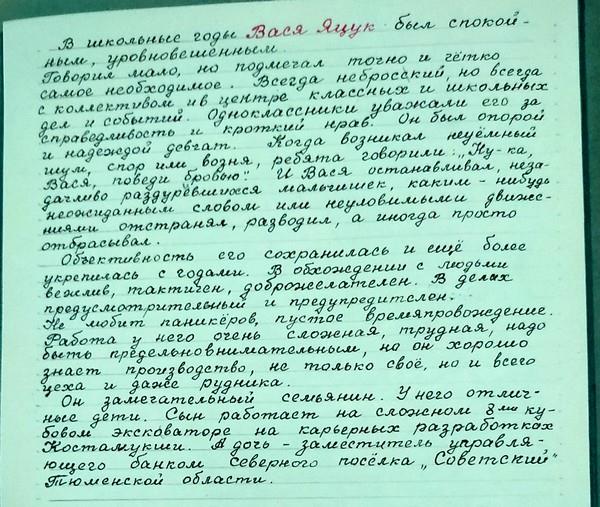 В школьные годы Вася Яцук был спокой-
ным, уровновешенным.
Говорил мало, но подмечал точно и чётко
самое необходимое. Всегда небросский, но всегда
с коллективом и в центре классных и школьных
дел и событий. Одноклассники уважали его за
справедливость и кроткий нрав. Он был опорой
и надеждой девчат. Когда возникал неуёмный
шум, спор или возня, ребята говорили: „Ну-ка,
Вася, поведи бровью!" И Вася останавливал, неза-
дачливо раздуревшихся мальчишек, каким-нибудь
неожиданным словом или неуловимыми движе-
ниями отстранял, разводил, а иногда просто
отбрасывал.
Объективность его сохранилась и ещё более
укрепилась с годами. В обхождении с людьми
вежлив, тактичен, доброжелателен. В делах
предусмотрительный и предупредителен.
Не любит паникёров, пустое времяпровождение.
Работа у него очень сложная, трудная, надо
быть предельновнимательным, но он хорошо
знает производство, не только своё, но и всего
цеха и даже рудника.
Он замечательный семьянин. У него отлич-
ные дети. Сын работает на сложном 8ми ку-
бовом эксковаторе на карьерных разработках
Костамукши. А дочь - заместитель управля-
ющего банком северного посёлка „Советский"
Тюменской области.